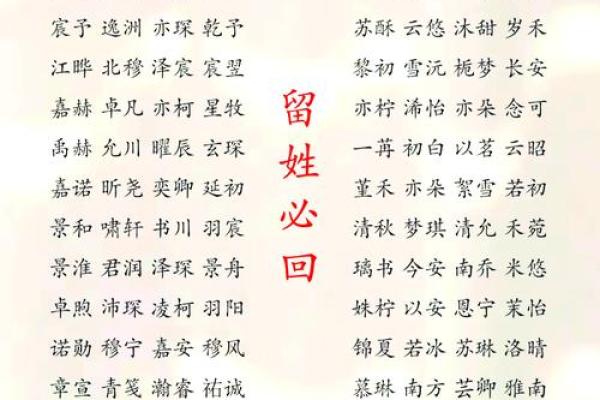 宸予 逸洲 亦琛 乾予
江晔 北穆 泽宸 宸翌
嘉赫 卓凡 亦柯 星牧
禹赫 允川 曜辰 玄琛
嘉诺 昕尧 奕卿 延初
景和 啸轩 书川 羽宸
景淮 君润 泽琛 景舟
卓煦 沛琛 凌柯 羽阳
诺勋 穆宁 嘉安 穆风
章宣 青笺 瀚睿 祐诚
留姓必回
苏酥 云悠 沐甜 岁禾
黎初 雪沅 栀梦 长安
亦柠 浠怡 亦朵 念可
一苒 初白 以茗 云昭
堇禾 亦朵 絮雪 若初
清秋 梦琪 清允 禾菀
璃书 今安 南乔 米悠
姝柠 以安 恩宁 茉怡
锦夏 若冰 苏琳 洛晴
慕琳 南方 芸卿 雅南